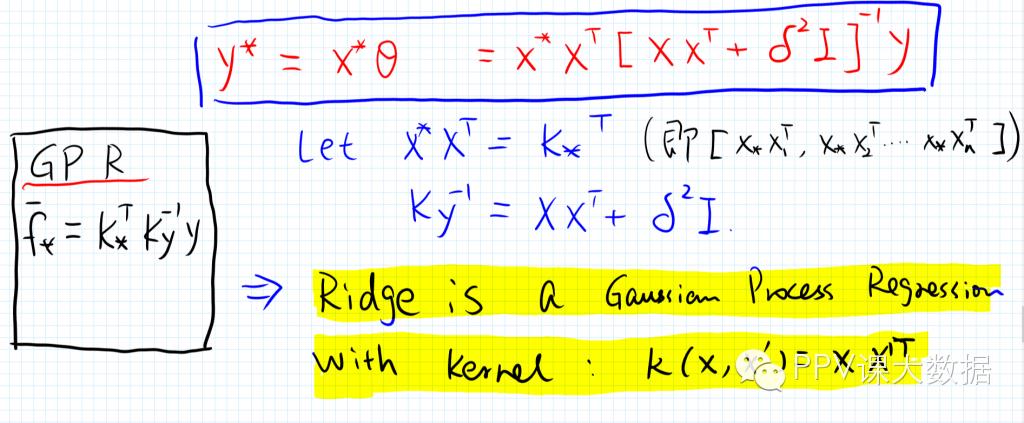 y* = x*θ = x*xᵀ[XXᵀ + δ²I]⁻¹y
Let x*Xᵀ = k*ᵀ (即[x*x₁ᵀ, x*x₂ᵀ .... x*xₙᵀ])
GPR
f̄* = k*ᵀ Ky⁻¹ y
Ky⁻¹ = XXᵀ + δ²I.
⇒ Ridge is a Gaussian Process Regression
with kernel : k(x, x') = x x'ᵀ
PPV课大数据